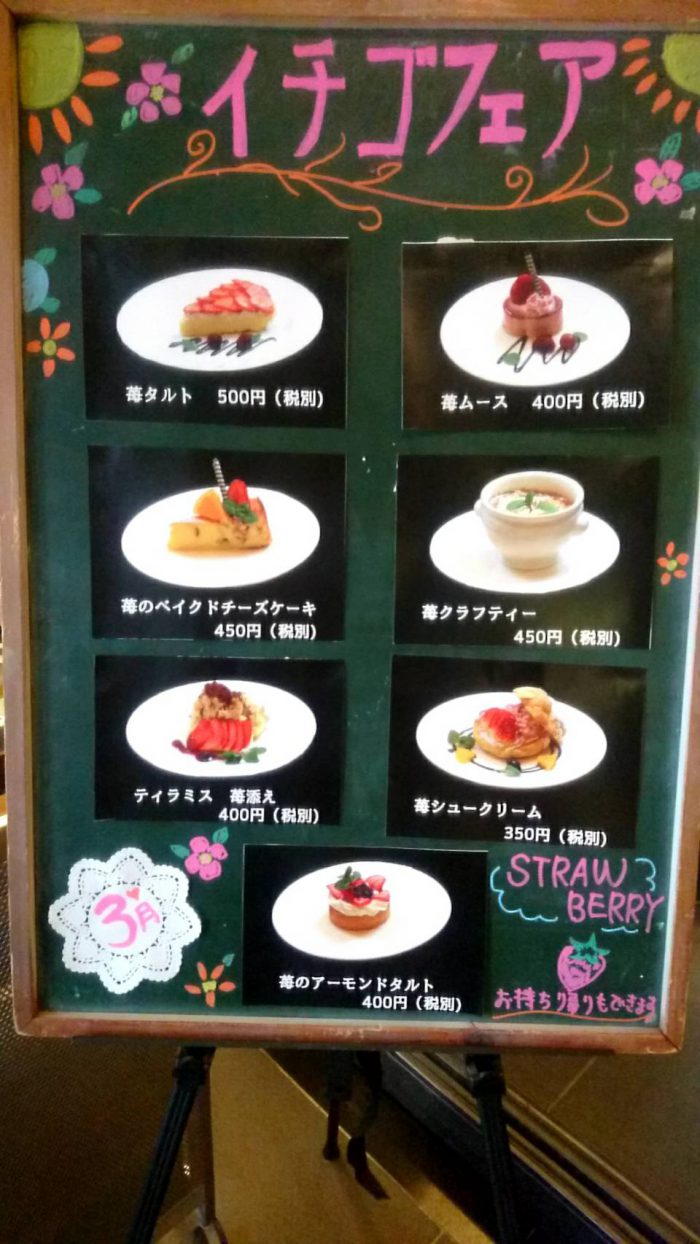 イチゴフェア
苺タルト 500円(税別)
苺ムース 400円(税別)
苺のベイクドチーズケーキ
450円(税別)
苺クラフティー
450円(税別)
ティラミス 苺添え
400円(税別)
苺シュークリーム
350円(税別)
3月
苺のアーモンドタルト
400円(税別)
STRAW
BERRY
お持ち帰りもできます